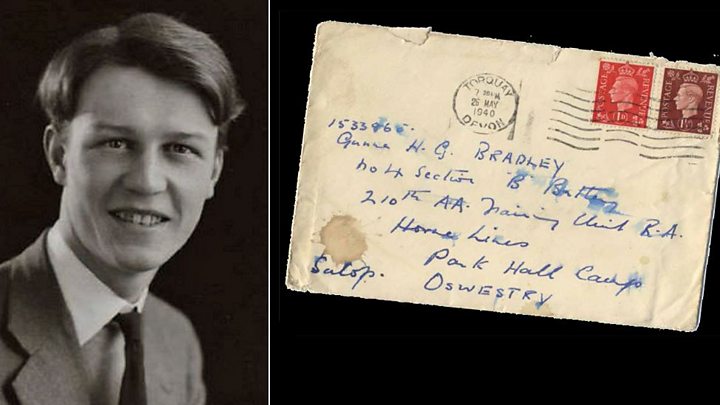 TORQUAY
26 MAY
1940
DEVON
POSTAGE REVENUE
1D
POSTAGE REVENUE
Gunner H. G. BRADLEY
No 4 Section B
210th AA. Training Unit R.A.
Home Lines
Park Hall Camp
OSWESTRY
Salop.